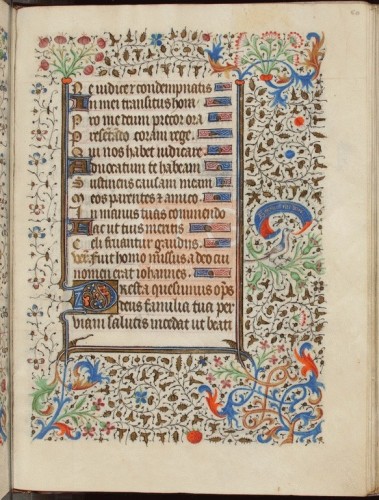 Ne iudicer condempnatus
In mei transitus hora
Pro me deum precor ora
Presentato coram rege
Qui nos habet iudicare
Aduocatum te habeam
Sustinens causam meam
Meos parentes et amicos
In manus tuas commendo
Fac ut tuis meritis
Celi fruantur gaudijs.
Ver. Fuit homo missus a deo cui
nomen erat iohannes.
Presta quesumus omps
deus familia tua per
viam salutis incedat ut beati